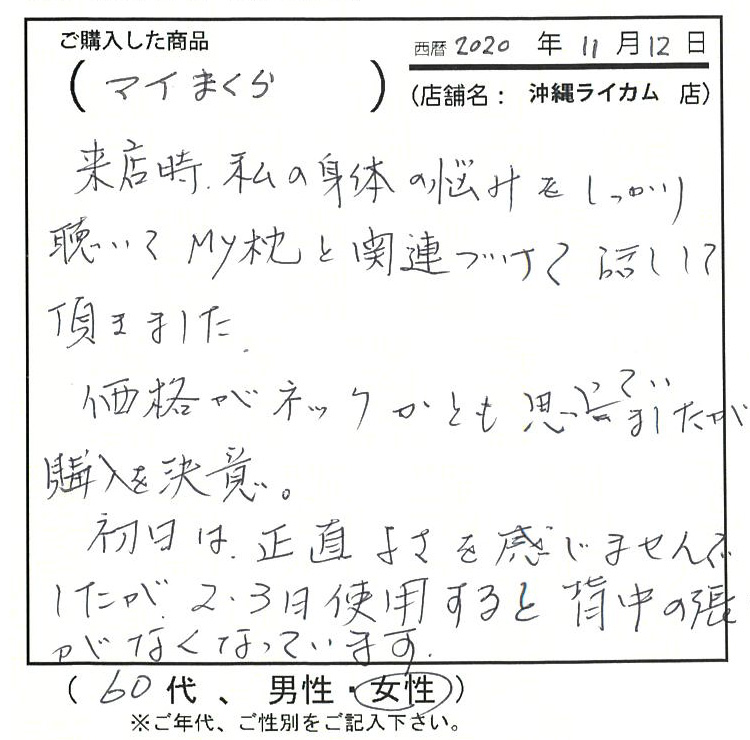 ご購入した商品
西暦 2020 年 11 月 12 日
(マイまくら)
(店舗名： 沖縄ライカム 店)
来店時、私の身体の悩みをしっかり
聴いて MY枕と関連づけて 話して
頂きました。
価格がネックかとも思っていましたが
購入を決意。
初日は、正直よさを感じませんで
したが、2・3日使用すると背中の張
がなくなっています。
(60代、男性・女性)
※ご年代、ご性別をご記入下さい。